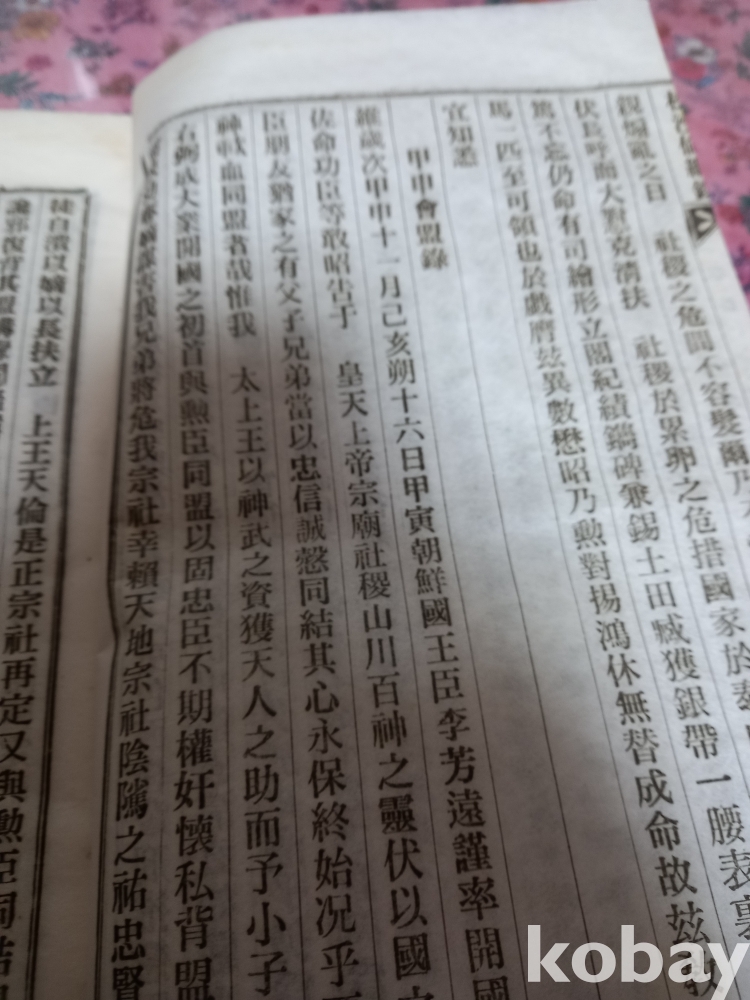 親煽亂之日 社稷之危間不容髮爾乃
伏民呼而大懟克濟扶 社稷於累卵之危措國家於泰
篤不忘仍命有司繪形立閣紀績鐫碑兼錫土田臧獲銀帶一腰表裏
馬一匹至可領也於戲膺玆異數懋昭乃勲對揚鴻休無替成命故玆敎
宜知悉
甲申會盟錄
維歲次甲申十一月己亥朔十六日甲寅朝鮮國王臣李芳遠謹率開國
佐命功臣等敢昭告于 皇天上帝宗廟社稷山川百神之靈伏以國
臣朋友猶家之有父子兄弟當以忠信誠慤同結其心永保終始况乎
神歃血同盟者哉惟我 太上王以神武之資獲天人之助而予小子
右弼成大業開國之初首與勲臣同盟以固忠臣不期權奸懷私背盟
我兄弟將危我宗社幸賴天地宗社陰隲之祐忠賢
徒自潰以嫡以長扶立 上王天倫是正宗社再定又與勲臣同結
kobay